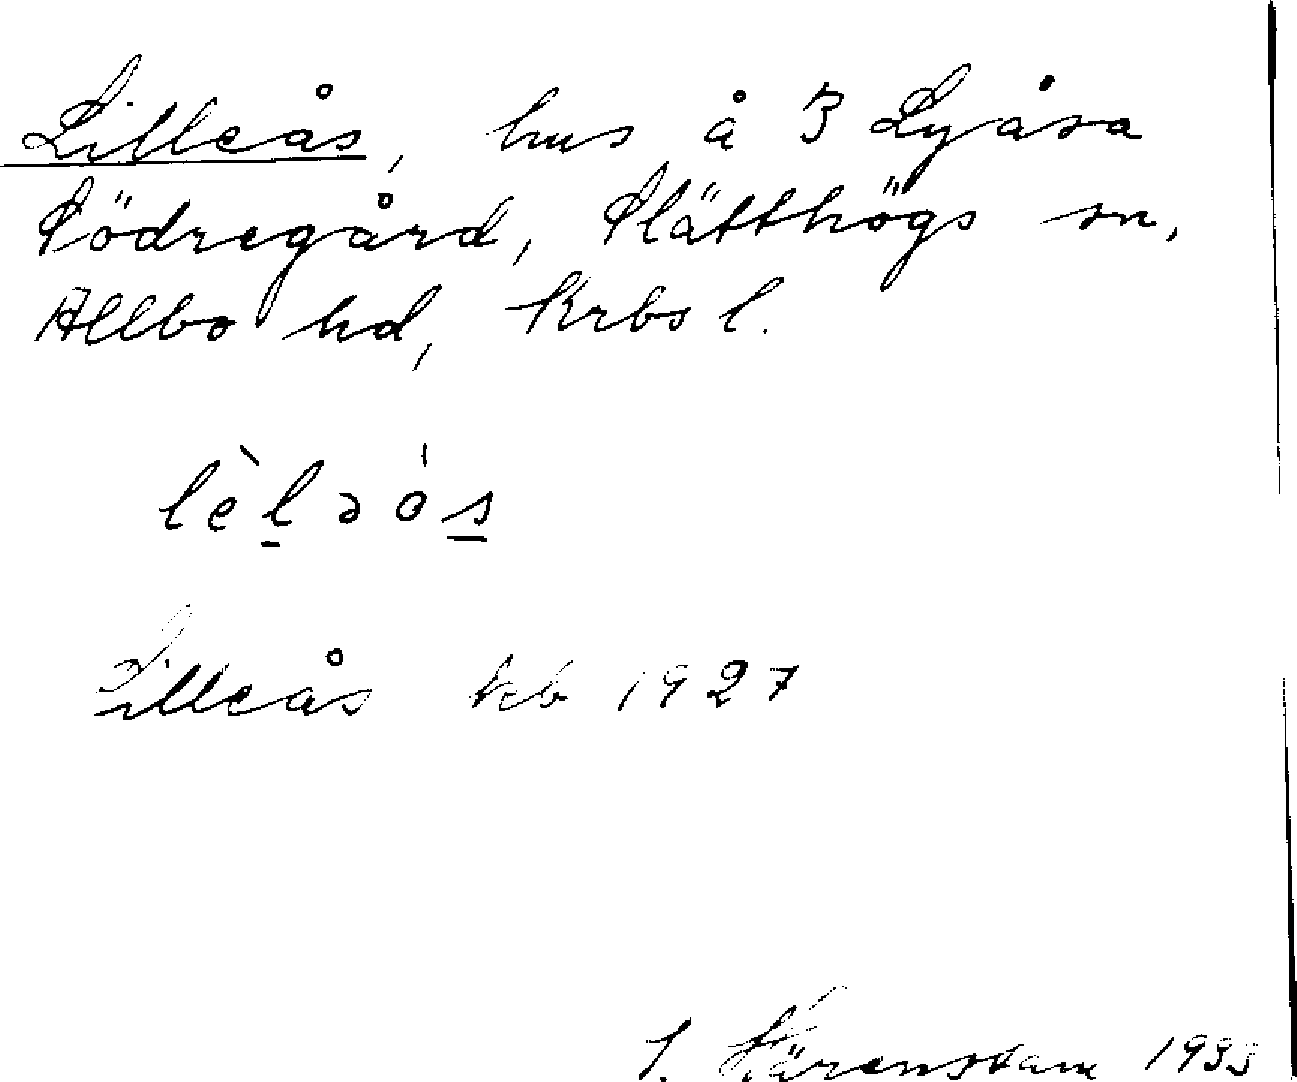 Lilleås, hus å 3 Lyåsa
Södregård, Slätthögs sn,
Allbo hd, Krbs l.
lèləós
Lilleås kb 1927
S. Särenstam 1933